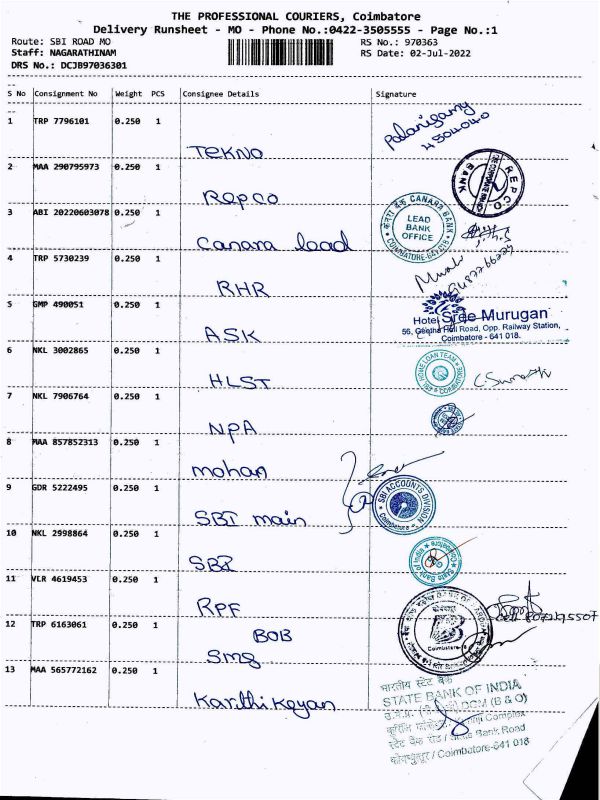 THE PROFESSIONAL COURIERS, Coimbatore
Delivery Runsheet - MO - Phone No.:0422-3505555 - Page No.:1
Route: SBI ROAD MO RS No.: 970363
Staff: NAGARATHINAM RS Date: 02-Jul-2022
DRS No.: DCJB97036301
S No Consignment No Weight PCS Consignee Details Signature
1 TRP 7796101 0.250 1
Palanisamy
4504040
TEKNO
2 MAA 290795973 0.250 1
REPCO BANK
Repco
3 ABI 20220603078 0.250 1
केनरा बैंक CANARA BANK
LEAD BANK OFFICE
COIMBATORE-641018
Canara lead
4 TRP 5730239 0.250 1
RHR
5 GMP 490051 0.250 1
Hotel Sree Murugan
56, Geetha Hall Road, Opp. Railway Station,
Coimbatore - 641 018.
ASK
6 NKL 3002865 0.250 1
HOME LOAN TEAM
COIMBATORE
HLST
7 NKL 7906764 0.250 1
NPA
8 MAA 857852313 0.250 1
mohan
9 GDR 5222495 0.250 1
SBI ACCOUNTS DIVISION
Coimbatore
SBI main
10 NKL 2998864 0.250 1
State Bank of India
Coimbatore
SBI
11 VLR 4619453 0.250 1
RPF
12 TRP 6163061 0.250 1
BOB
Coimbatore
SMS
13 MAA 565772162 0.250 1
Karthikeyan
भारतीय स्टेट बैंक
STATE BANK OF INDIA
DCM (B & O)
Complex
स्टेट बैंक रोड / State Bank Road
कोयम्बुत्तूर / Coimbatore-641 018